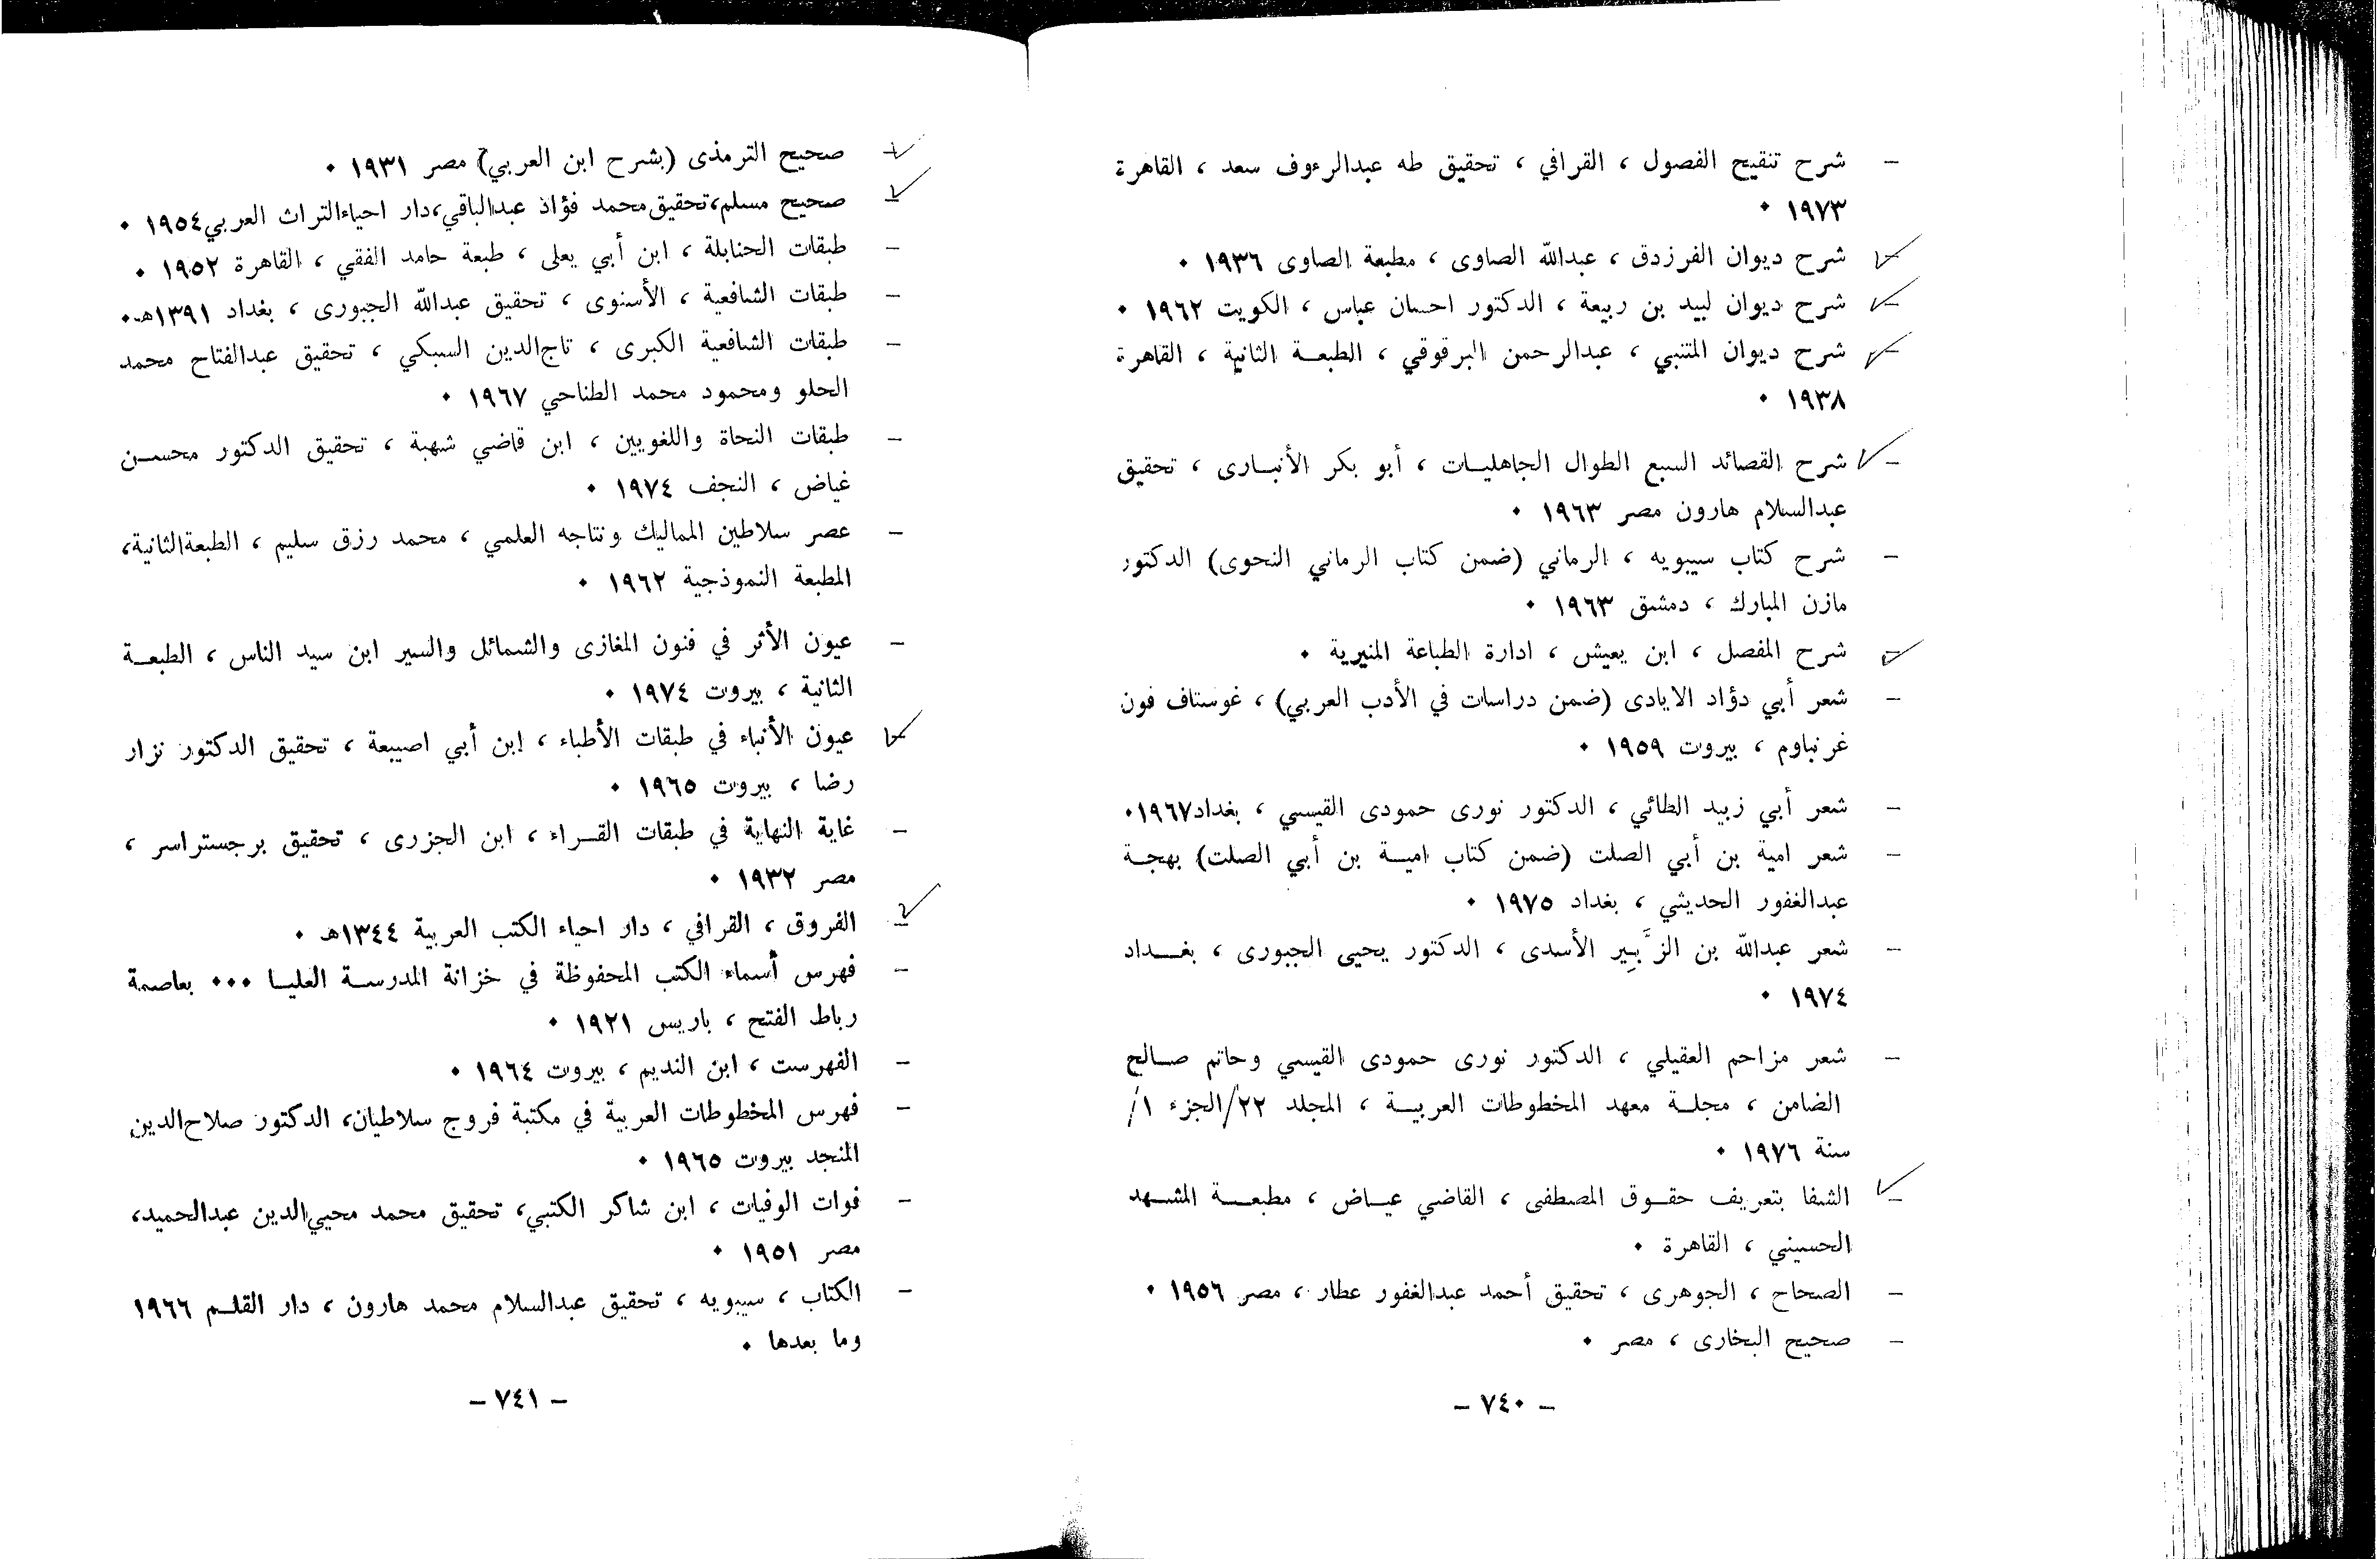 – شرح تنقيح الفصول ، القرافي ، تحقيق طه عبدالرءوف سعد ، القاهرة
١٩٧٣ ٠
– شرح ديوان الفرزدق ، عبدالله الصاوى ، مطبعة الصاوى ١٩٣٦ ٠
– شرح ديوان لبيد بن ربيعة ، الدكتور احسان عباس ، الكويت ١٩٦٢ ٠
– شرح ديوان المتنبي ، عبدالرحمن البرقوقي ، الطبعة الثانية ، القاهرة
١٩٣٨ ٠
– شرح القصائد السبع الطوال الجاهليات ، أبو بكر الأنبارى ، تحقيق
عبدالسلام هارون مصر ١٩٦٣ ٠
– شرح كتاب سيبويه ، الرماني (ضمن كتاب الرماني النحوى) الدكتور
مازن المبارك ، دمشق ١٩٦٣ ٠
– شرح المفصل ، ابن يعيش ، ادارة الطباعة المنيرية ٠
– شعر أبي دؤاد الايادى (ضمن دراسات في الأدب العربي) ، غوستاف فون
غرنباوم ، بيروت ١٩٥٩ ٠
– شعر أبي زبيد الطائي ، الدكتور نورى حمودى القيسي ، بغداد١٩٦٧٠
– شعر امية بن أبي الصلت (ضمن كتاب امية بن أبي الصلت) بهجة
عبدالغفور الحديثي ، بغداد ١٩٧٥ ٠
– شعر عبدالله بن الزَّبِير الأسدى ، الدكتور يحيى الجبورى ، بغداد
١٩٧٤ ٠
– شعر مزاحم العقيلي ، الدكتور نورى حمودى القيسي وحاتم صالح
الضامن ، مجلة معهد المخطوطات العربية ، المجلد ٢٢/الجزء ١/
سنة ١٩٧٦ ٠
– الشفا بتعريف حقوق المصطفى ، القاضي عياض ، مطبعة المشهد
الحسيني ، القاهرة ٠
– الصحاح ، الجوهرى ، تحقيق أحمد عبدالغفور عطار ، مصر ١٩٥٦ ٠
– صحيح البخارى ، مصر ٠
– ٧٤٠ –
– صحيح الترمذى (بشرح ابن العربي) مصر ١٩٣١ ٠
– صحيح مسلم،تحقيق محمد فؤاد عبدالباقي،دار احياءالتراث العربي١٩٥٤ ٠
– طبقات الحنابلة ، ابن أبي يعلى ، طبعة حامد الفقي ، القاهرة ١٩٥٢ ٠
– طبقات الشافعية ، الأسنوى ، تحقيق عبدالله الجبورى ، بغداد ١٣٩١هـ٠
– طبقات الشافعية الكبرى ، تاج‌الدين السبكي ، تحقيق عبدالفتاح محمد
الحلو ومحمود محمد الطناحي ١٩٦٧ ٠
– طبقات النحاة واللغويين ، ابن قاضي شهبة ، تحقيق الدكتور محسن
غياض ، النجف ١٩٧٤ ٠
– عصر سلاطين المماليك ونتاجه العلمي ، محمد رزق سليم ، الطبعةالثانية،
المطبعة النموذجية ١٩٦٢ ٠
– عيون الأثر في فنون المغازى والشمائل والسير ابن سيد الناس ، الطبعة
الثانية ، بيروت ١٩٧٤ ٠
– عيون الأنباء في طبقات الأطباء ، إبن أبي اصيبعة ، تحقيق الدكتور نزار
رضا ، بيروت ١٩٦٥ ٠
– غاية النهاية في طبقات القراء ، ابن الجزرى ، تحقيق برجستراسر ،
مصر ١٩٣٢ ٠
– الفروق ، القرافي ، دار احياء الكتب العربية ١٣٤٤هـ ٠
– فهرس أسماء الكتب المحفوظة في خزانة المدرسة العليا ٠٠٠ بعاصمة
رباط الفتح ، باريس ١٩٢١ ٠
– الفهرست ، ابن النديم ، بيروت ١٩٦٤ ٠
– فهرس المخطوطات العربية في مكتبة فروج سلاطيان، الدكتور صلاح‌الدين
المنجد بيروت ١٩٦٥ ٠
– فوات الوفيات ، ابن شاكر الكتبي، تحقيق محمد محيي‌الدين عبدالحميد،
مصر ١٩٥١ ٠
– الكتاب ، سيبويه ، تحقيق عبدالسلام محمد هارون ، دار القلم ١٩٦٦
وما بعدها ٠
– ٧٤١ –